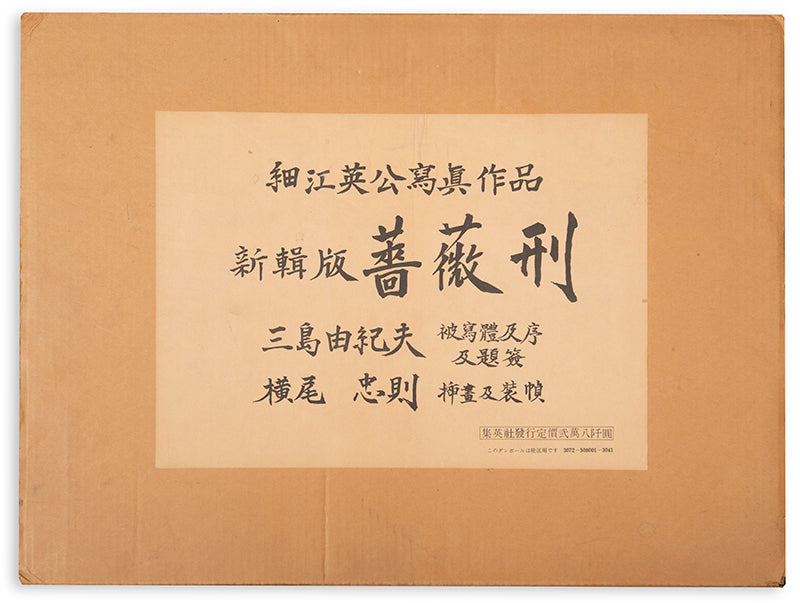 細江英公寫眞作品
新輯版 薔薇刑
三島由紀夫 被寫體及序
及題簽
橫尾 忠則 揷畫及裝幀
集英社發行定價弐萬八阡圓
このダンボールは輸送用です 3072-508001-3041